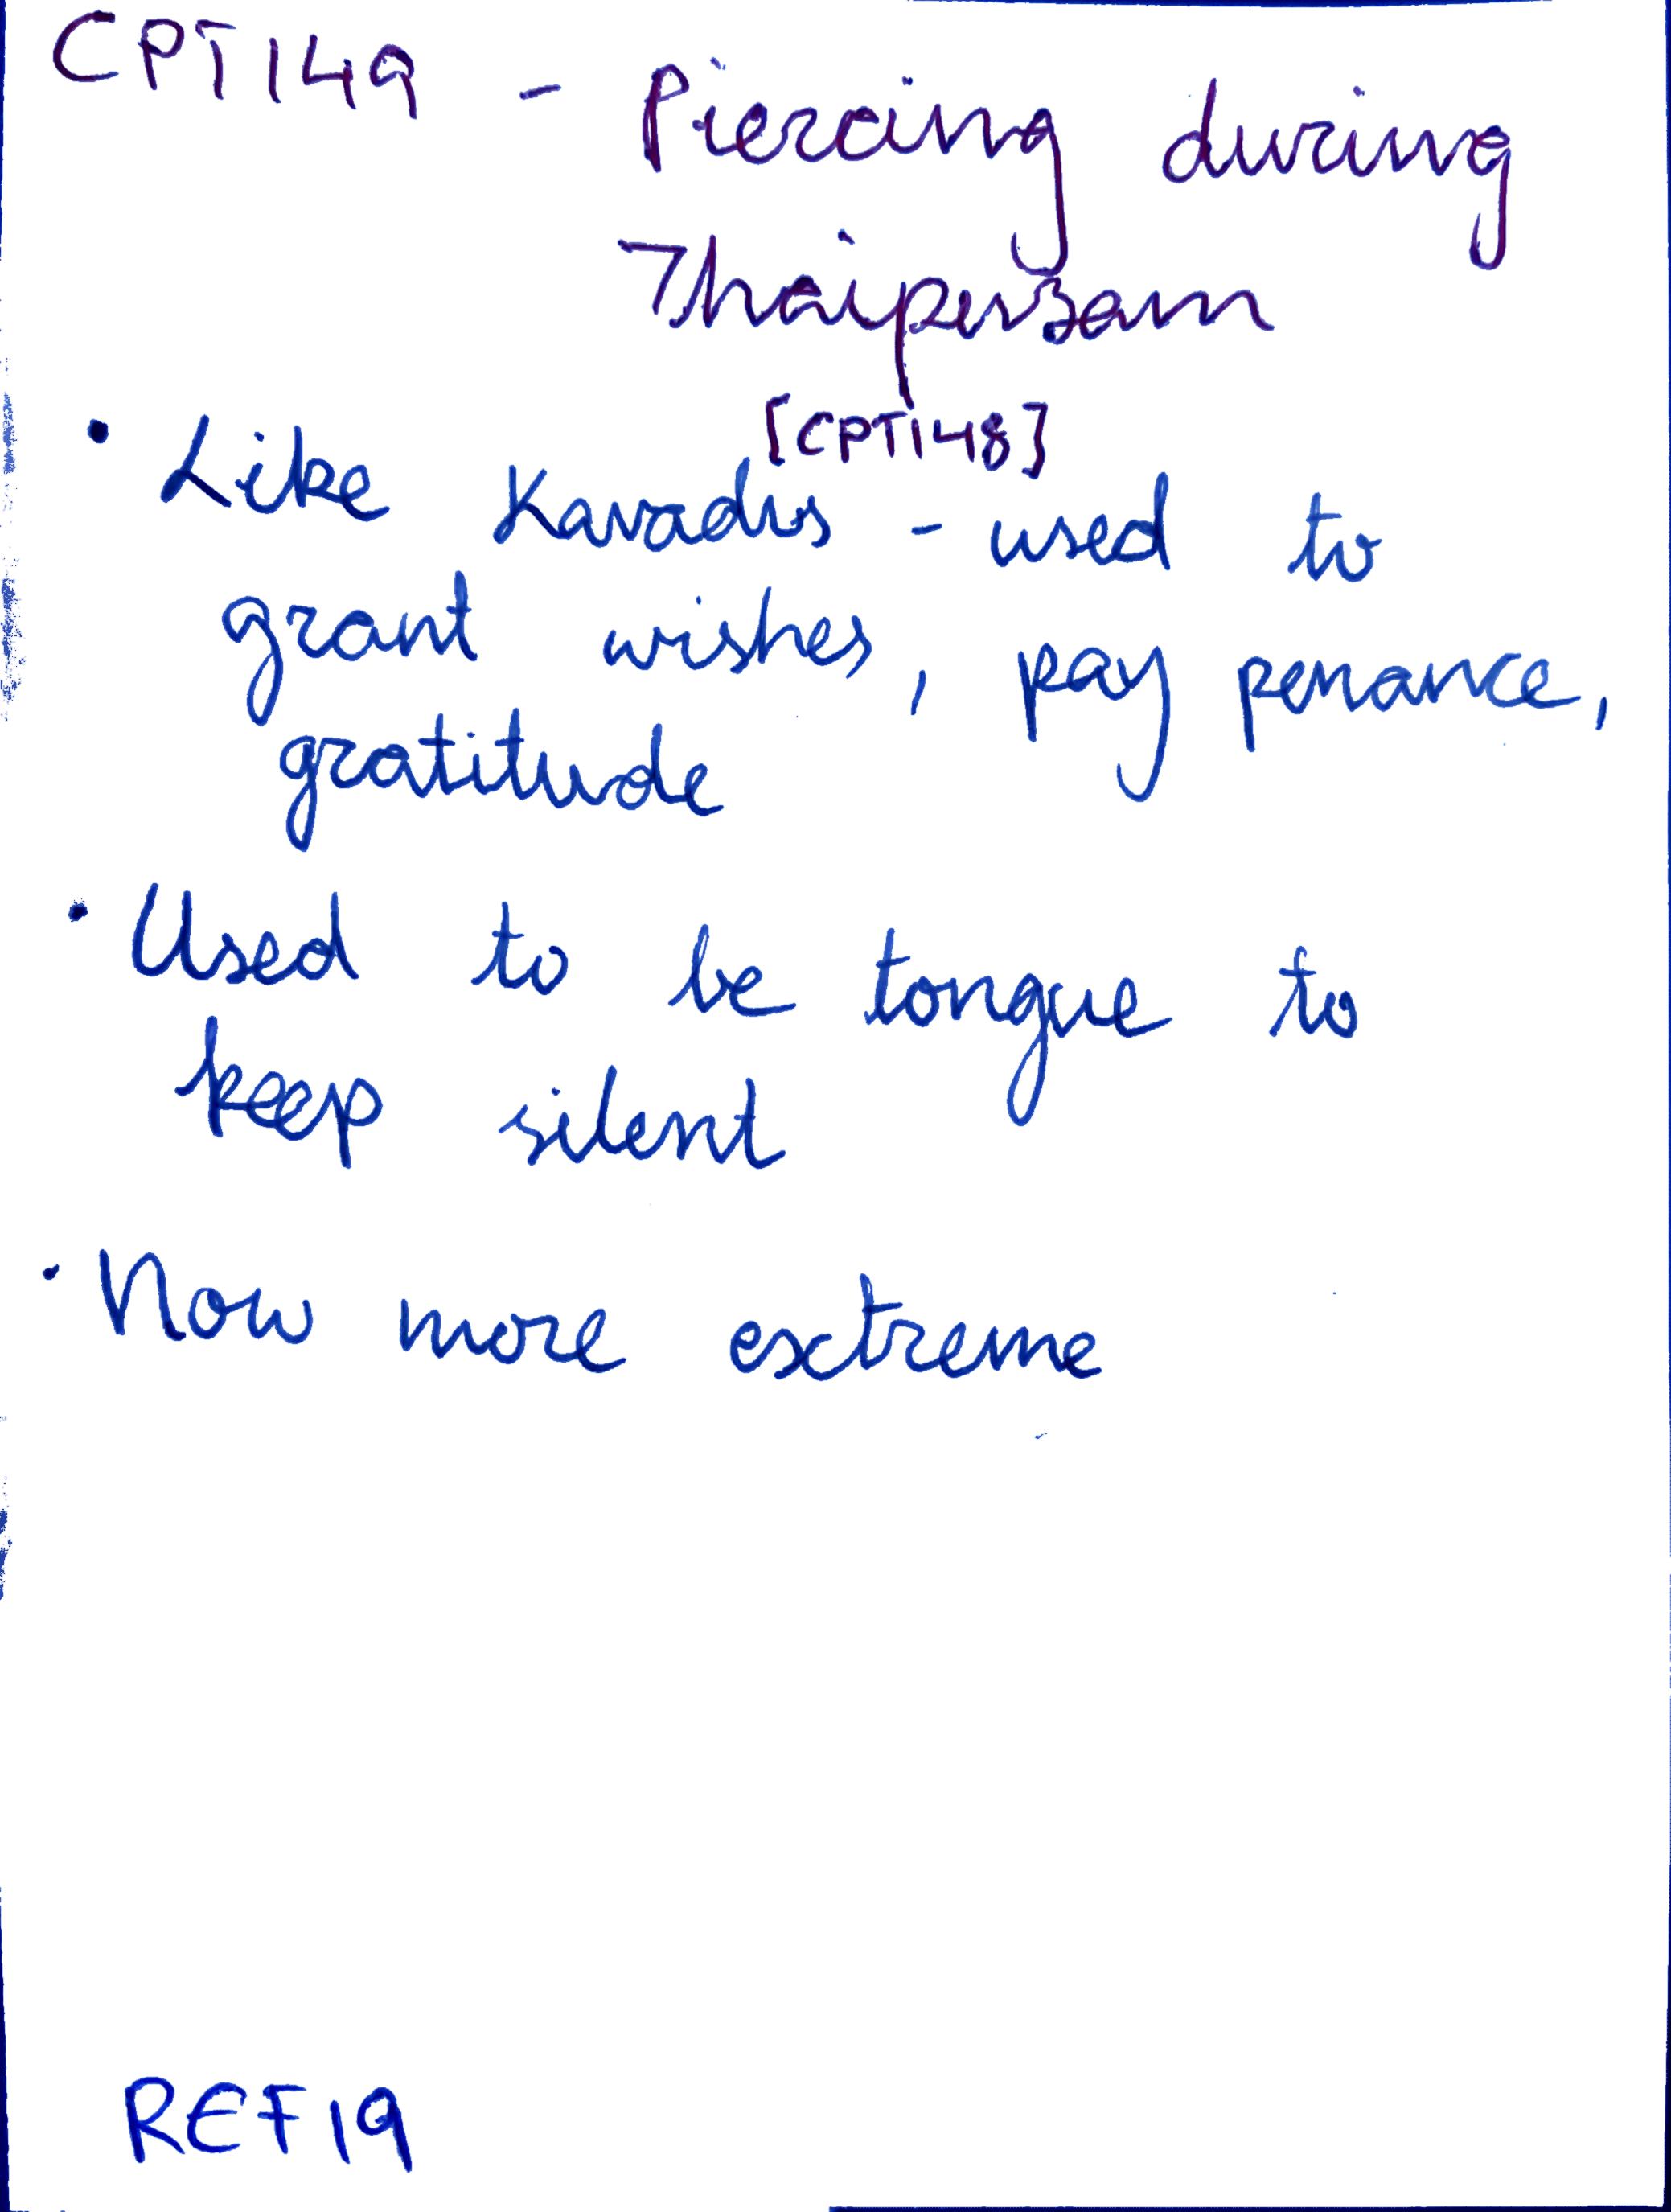 CPT149 - Piercing during
Thaipersam
[CPT148]
• Like Kavadis - used to
grant wishes, pay penance,
gratitude
• Used to be tongue to
keep silent
• Now more extreme
REF19